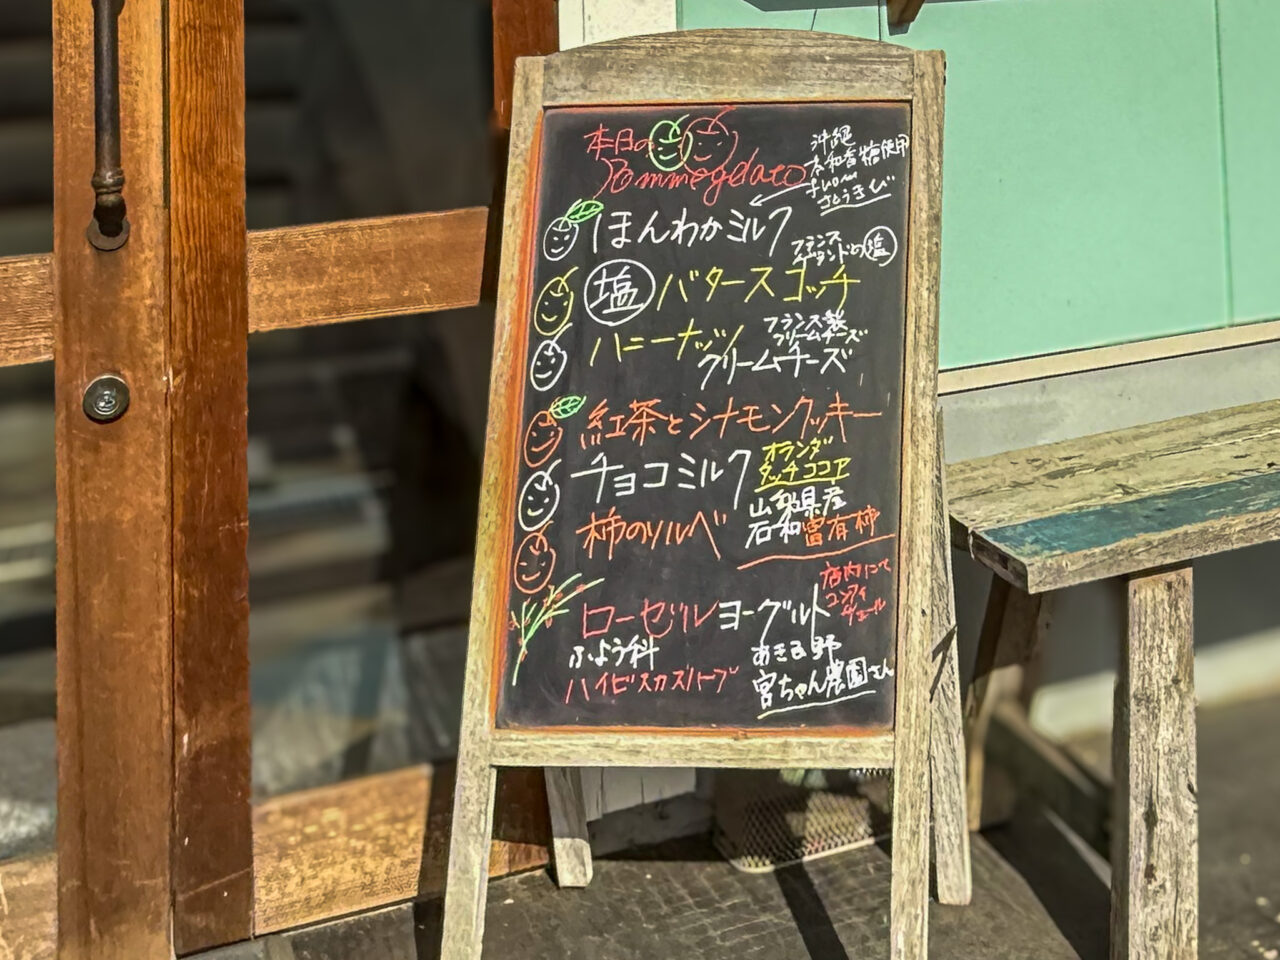 本日の
Pommegelato
沖縄
本和香糖使用
from
さとうきび
ほんわかミルク
フランス
ゲランドの塩
塩バタースコッチ
ハニーナッツ
クリームチーズ
フランス製
クリームチーズ
紅茶とシナモンクッキー
チョコミルク
オランダ
ダッチココア
柿のソルベ
山梨県産
石和富有柿
ローゼルヨーグルト
店内にて
コンフィ
チュール
ふよう科
ハイビスカスハーブ
あきる野
宮ちゃん農園さん